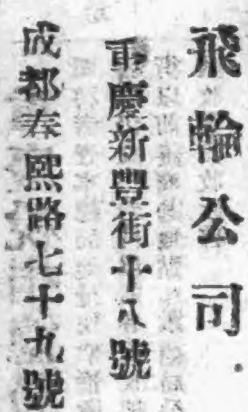 飛輪公司.
重慶新豐街十八號
成都春熙路七十九號